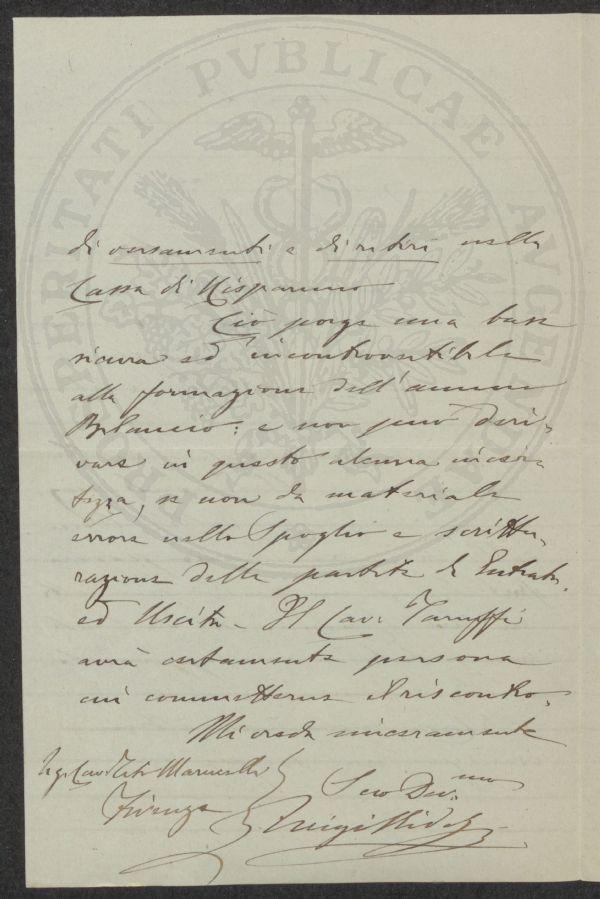 PROSPERITATI PVBLICAE AVGENDAE
di versamenti e di ritiri nella
Cassa di Risparmio
Ciò porge una base
sicura ed incontrovertibile
alla formazione dell'annuo
Bilancio: e non può deri-
vare in questo alcuna incer-
tezza, se non da materiale
errore nello Spoglio e scrittu-
razione delle partite di Entrata,
ed Uscita - Il Cav: Taruffi
avrà certamente persona
cui commetterne il riscontro.
Mi creda sinceramente
Sig. Cav. Marucelli
Firenze
Suo Dev.mo
Luigi Ridolfi